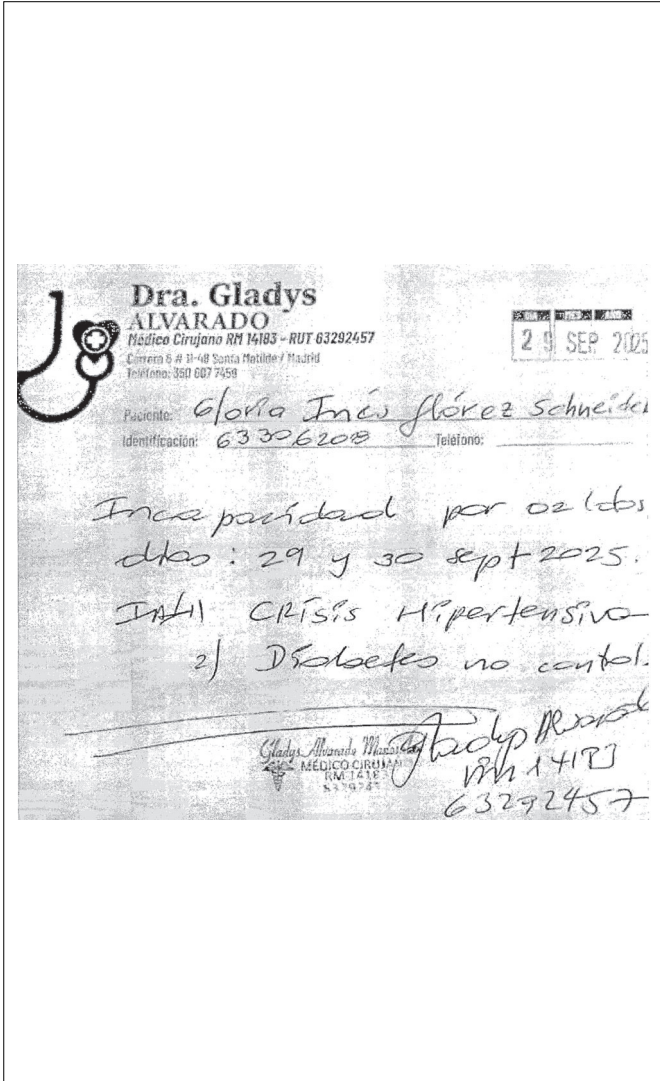 Dra. Gladys
ALVARADO
Médico Cirujano RM 14183 - RUT 63292457
Carrera 6 # 11-48 Santa Matilde / Madrid
Teléfono: 350 607 7459
DIA MES AÑO
29 SEP 2025
Paciente: Gloria Inés flórez Schneider
Identificación: 63306208 Teléfono:
Incapacidad por 02 (dos
días: 29 y 30 sept 2025.
CRísis Hipertensiva
2) Diabetes no contol.
Gladys Alvarado
Gladys Alvarado
MÉDICO CIRUJANO
RM 14183
RM 14183
63292457